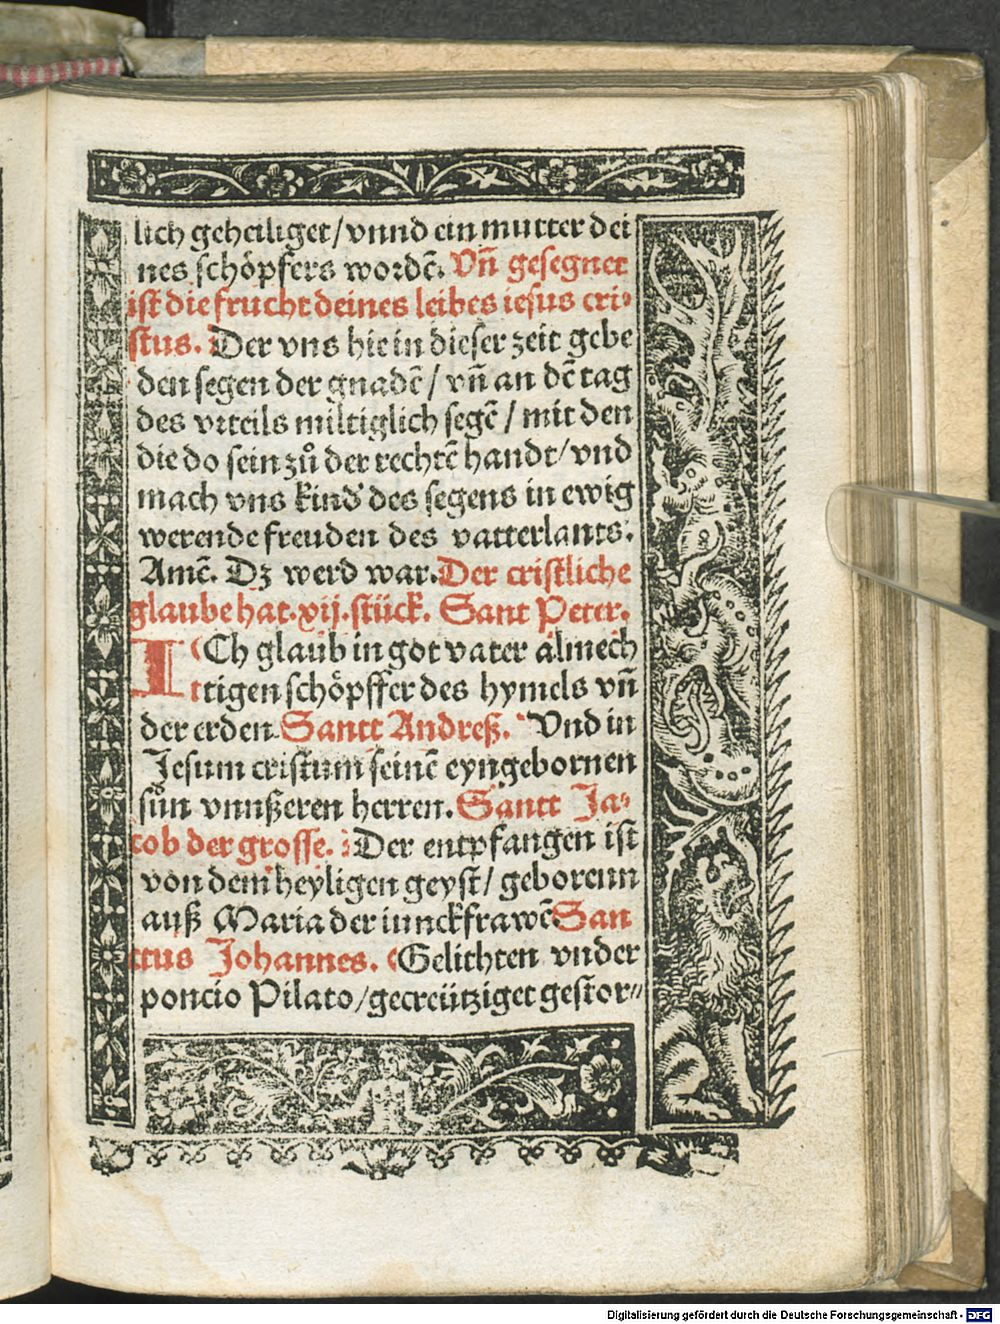 lich geheiliget/vnnd ein mutter dei
nes schöpfers wordē. Vñ gesegnet
ist die frucht deines leibes iesus cri⸗
stus. Der vns hie in dieser zeit gebe
den segen der gnadē/ vñ an dē tag
des vrteils miltiglich segē/ mit den
die do sein zů der rechtē handt/vnd
mach vns kind des segens in ewig
werende freuden des vatterlants.
Amē. Dz werd war. Der cristliche
glaube hat.xij.stück. Sant Peter.
ICh glaub in got vater almech
tigen schöpffer des hymels vñ
der erden. Sanct Andreß. Vnd in
Jesum cristum seinē eyngebornen
sůn vnnßeren herren. Sanct Ja⸗
cob der grosse. Der entpfangen ist
von dem heyligen geyst/ geborenn
auß Maria der iunckfrawē San
ctus Johannes. Gelichten vnder
poncio Pilato/gecreütziget gestor⸗
Digitalisierung gefördert durch die Deutsche Forschungsgemeinschaft - DFG